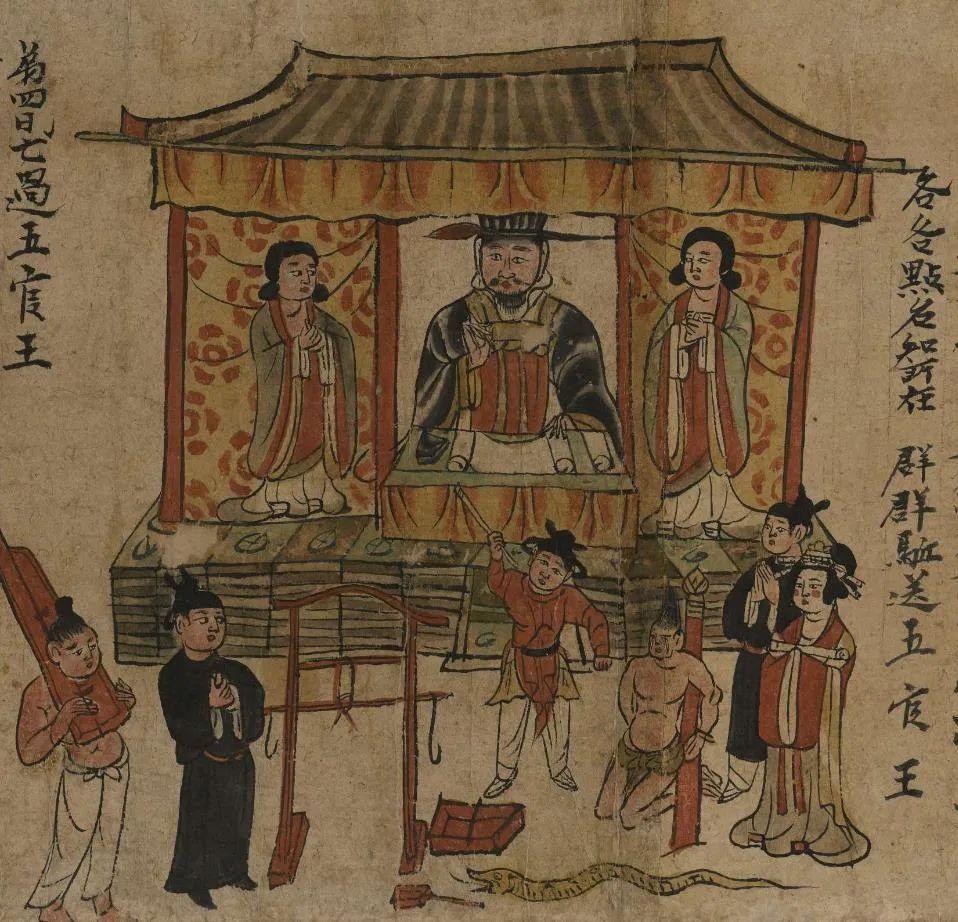 各各點名知所在 群群駈送五官王
第四日七過五官王